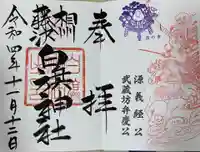 源義経公
武蔵坊弁慶公
奉拝
相州
藤沢
白旗神社
令和四年十一月十三日